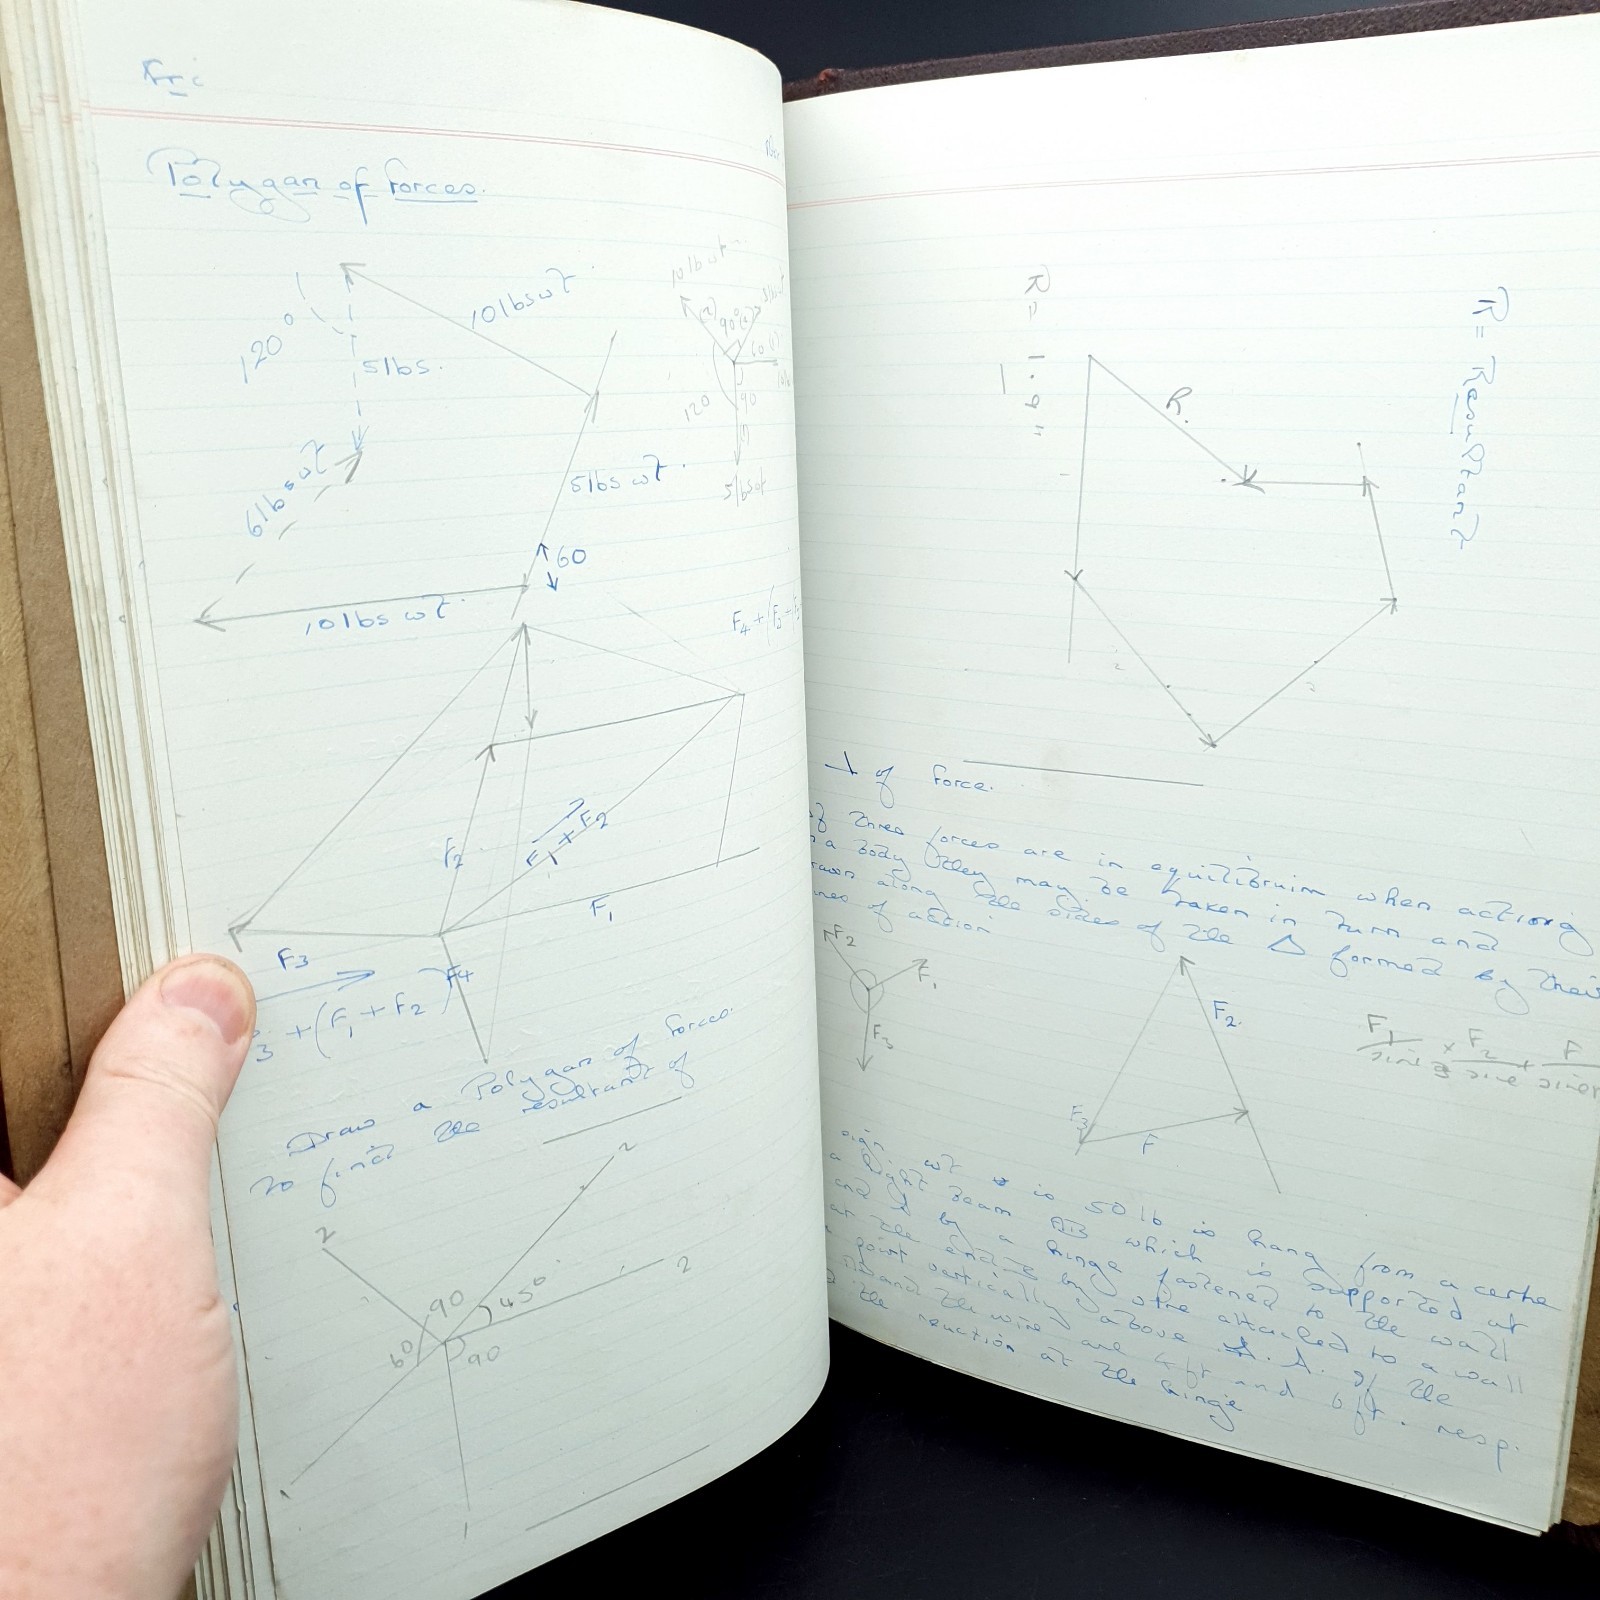 Fri
Polygan of forces.
10 lbs wt.
120°
5 lbs.
6 lbs wt
5 lbs wt.
60
10 lbs wt.
10 lb wt
(2)
90°
60
120
90
5 lbs wt
F4 + (F3 +
F2
F1 + F2
F1
F3
F4
3 + (F1 + F2)
Draw a Polygan of forces.
to find the resultant of
2
2
90
45°
2
60
90
1
1
R = 1.9"
R = Resultant
R.
2
2
of force.
three forces are in equilibruim when actiong
a body they may be taken in turn and
along the sides of the Δ formed by their
of action
F2
F1
F3
F2.
F3
F
F1 × F2 + F
sine sine
sign wt is 50 lb is hang from a
a light beam AB which is supported at
and by a hinge fastened to the wall
at the end by attached to a wall
point vertically above A. A. of the
and the wire are 4ft and 6ft. resp.
the reaction at the hinge